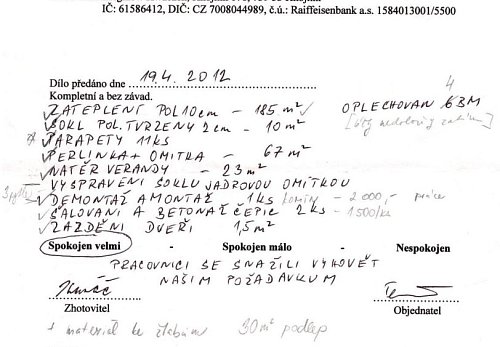 IČ: 61586412, DIČ: CZ 7008044989, č.ú.: Raiffeisenbank a.s. 1584013001/5500
Dílo předáno dne 19.4. 2012
Kompletní a bez závad.
ZATEPLENÍ POL 10cm - 185 m²
OPLECHOVAN 6BM
4
SOKL POL. TVRZENÝ 2cm - 10 m²
PARAPETY 11KS
PERLINKA + OMÍTKA - 67 m²
NATĚR VERANDY - 23 m²
VYSPRAVENÍ SOKLU JADROVOU OMÍTKOU
DEMONTÁŽ A MONTÁŽ 1KS komín - 2 000,- práce
ŠALOVÁNÍ A BETONÁŽ ČEPIC 2KS - 1500/ks
ZAZDĚNÍ DVEŘÍ 1,5 m²
Spokojen velmi - Spokojen málo - Nespokojen
PRACOVNÍCI SE SNAŽILI VYHOVĚT
NAŠIM POŽADAVKUM
Zhotovitel Objednatel
+ materiál ke žlabům 30 m²